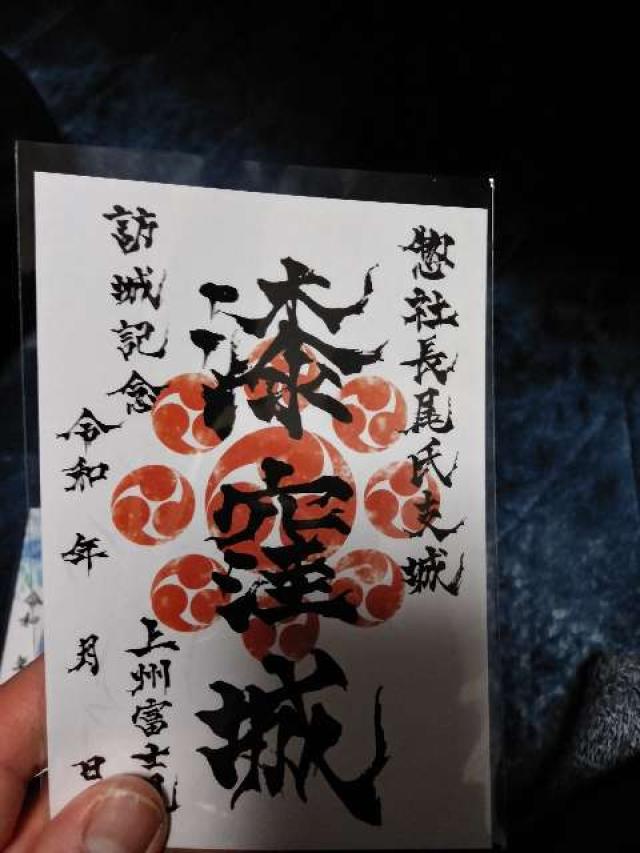 惣社長尾氏支城
漆窪城
訪城記念
上州富士見
令和 年 月 日